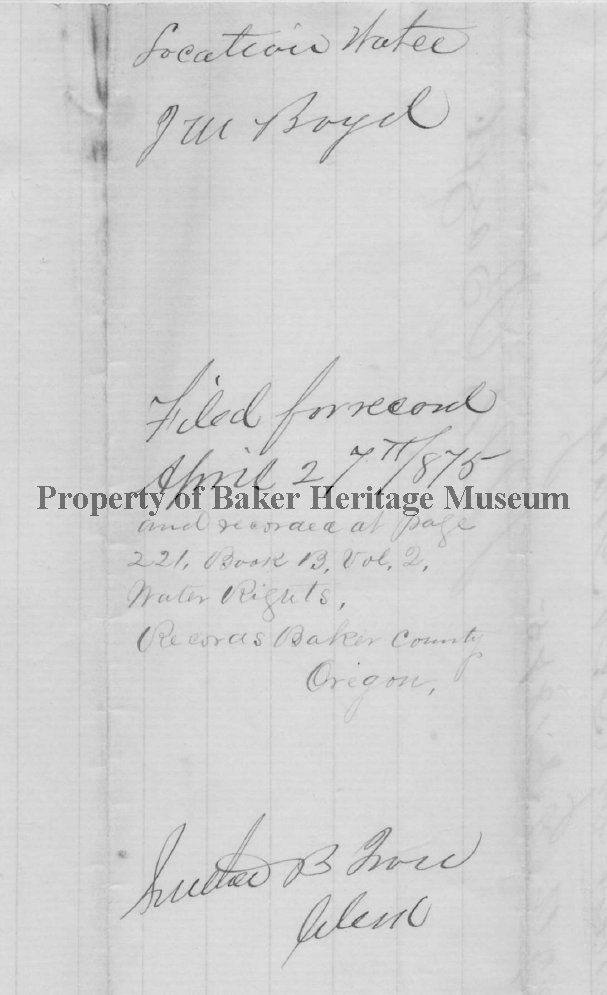 Location Water
J W Boyd
Filed for record
April 27th 1875
Property of Baker Heritage Museum
and recorded at page
221, Book B, Vol, 2,
Water Rights,
Records Baker County
Oregon,
B
Clerk